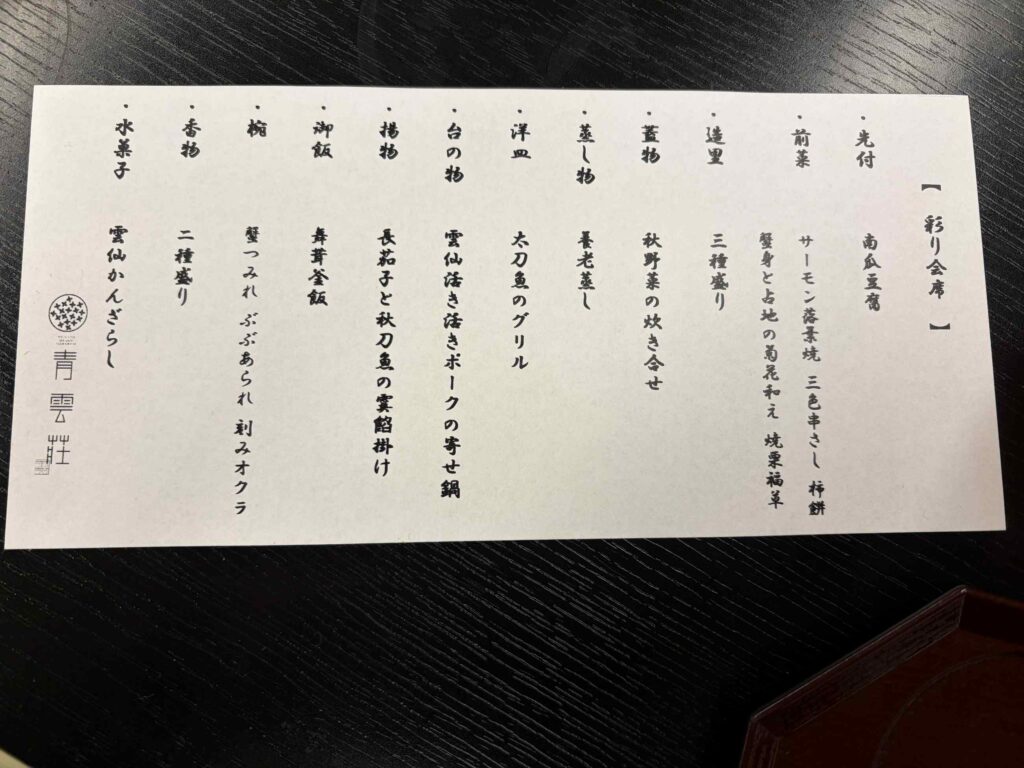 【 彩り会席 】
・先付 南瓜豆腐
・前菜 サーモン落葉焼 三色串さし 柿餅
蟹身と占地の菊花和え 焼栗福草
・造里 三種盛り
・蓋物 秋野菜の炊き合せ
・蒸し物 養老蒸し
・洋皿 太刀魚のグリル
・台の物 雲仙活き活きポークの寄せ鍋
・揚物 長茄子と秋刀魚の霙餡掛け
・御飯 舞茸釜飯
・椀 蟹つみれ ぶぶあられ 刻みオクラ
・香物 二種盛り
・水菓子 雲仙かんざらし
青雲荘